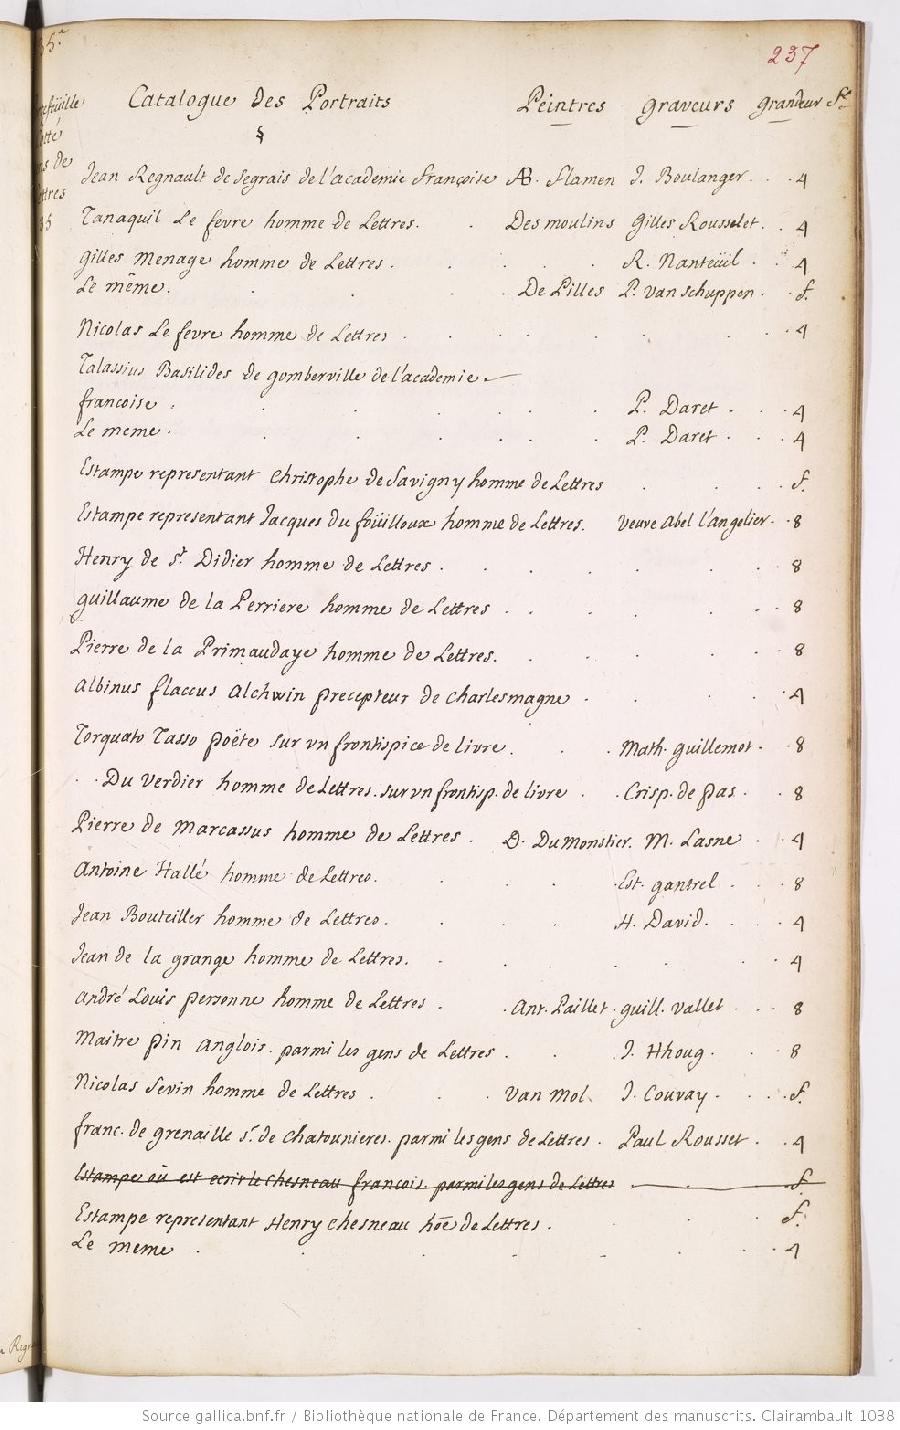 237
Catalogue des Portraits Peintres Graveurs Grandeur
§
Jean Regnault de Segrais de l'academie françoise AB. Flamen J. Boulanger . . 4
Tanaquil Le fevre homme de Lettres. . Des moulins Gilles Rousselet. . 4
Gilles Menage homme de Lettres . . . . R. Nanteüil . . 4
Le même. . . . De Pilles P. Van Schuppen . . f.
Nicolas Le fevre homme de Lettres . . . . . . . 4
Talassius Basilides de gomberville de l'academie
francoise . . . . . . P. Daret . . . 4
Le meme . . . . . . P. Daret . . . 4
Estampe representant Christophe de Savigny homme de Lettres . . . f.
Estampe representant Jacques du foüilloux homme de Lettres. Veuve Abel l'angelier . . 8
Henry de St. Didier homme de Lettres . . . . . . 8
guillaume de la Perriere homme de Lettres . . . . . . 8
Pierre de la Primaudaye homme de Lettres. . . . . . 8
Albinus flaccus Alchwin precepteur de Charlesmagne . . . . 4
Torquato Tasso poëte sur un frontispice de livre . . . Math. guillemot . 8
. . Du Verdier homme de Lettres. sur un frontisp. de livre . . Crisp. de pas . . 8
Pierre de Marcassus homme de Lettres . D. DuMonstier. M. Lasne . . 4
Antoine Hallé homme de Lettres. . . . Est. gantrel . . . 8
Jean Bouteiller homme de Lettres. . . . H. David. . . . 4
Jean de la grange homme de Lettres. . . . . . . 4
André Louis personne homme de Lettres . . Ant. Paillet . guill. Vallet . . . 8
Maitre pin anglois. parmi les gens de Lettres . . J. Hhoug . . . 8
Nicolas Sevin homme de Lettres . . . Van Mol. J. Couvay . . . f.
franc. de grenaille Sr. de Chatounieres. parmi les gens de Lettres . Paul Rousset . . 4
Estampe où est ecrit le Chesneau francois. parmi les gens de Lettres f.
Estampe representant Henry Chesneau hõe de Lettres . . . f.
Le meme . . . . . . . 4
Source gallica.bnf.fr / Bibliothèque nationale de France. Département des manuscrits. Clairambault 1038